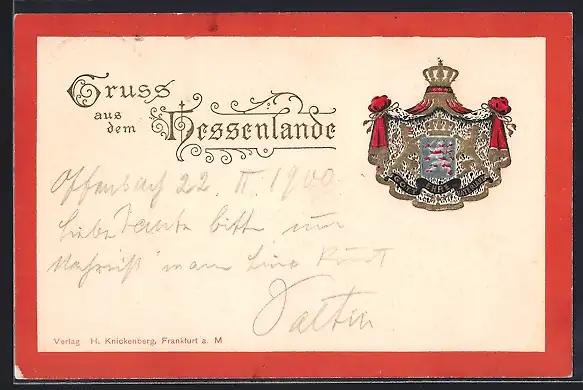 Gruss
aus
dem Hessenlande
GOTT EHRE VATERLAND
Offenbach 22. II. 1900
Liebe Tante bitte um
Nachricht wann Line kommt
Valtin
Verlag H. Knickenberg, Frankfurt a. M